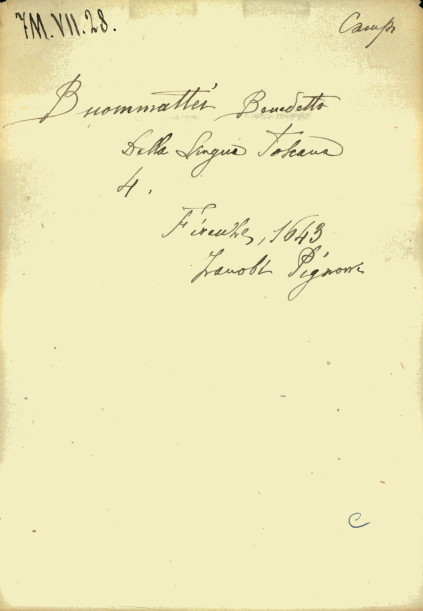 7M.VII.28.
Camps
Buommattei Benedetto
Della Lingua Toscana
4.
Firenze, 1643
Zanobi Pignoni
C